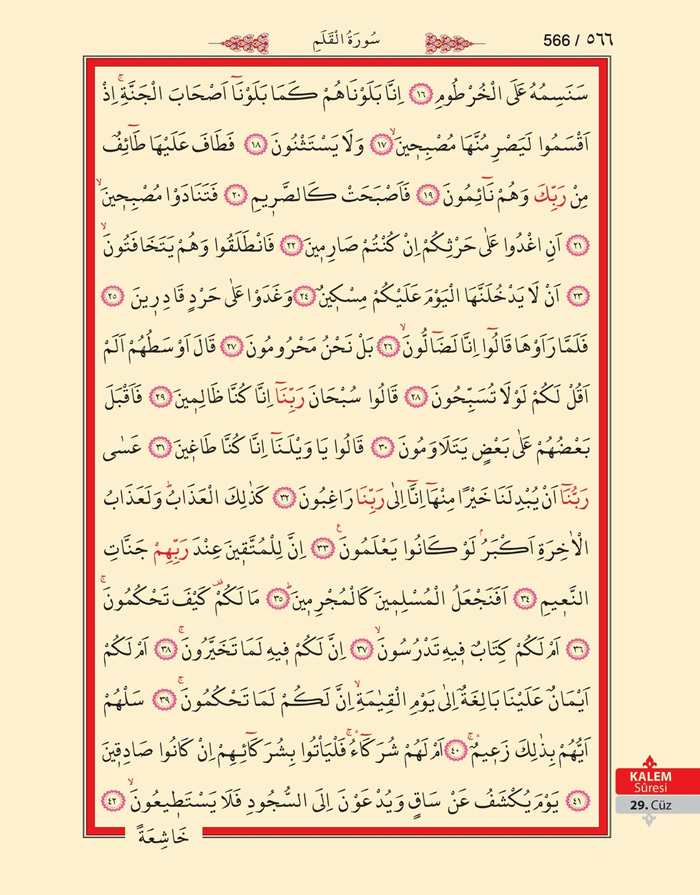 566 / ٥٦٦ سُورَةُ الْقَلَمِ
سَنَسِمُهُ عَلَى الْخُرْطُومِ ﴿١٦﴾ اِنَّا بَلَوْنَاهُمْ كَمَا بَلَوْنَٓا اَصْحَابَ الْجَنَّةِۚ اِذْ
اَقْسَمُوا لَيَصْرِمُنَّهَا مُصْبِح۪ينَۙ ﴿١٧﴾ وَلَا يَسْتَثْنُونَ ﴿١٨﴾ فَطَافَ عَلَيْهَا طَٓائِفٌ
مِنْ رَبِّكَ وَهُمْ نَٓائِمُونَ ﴿١٩﴾ فَاَصْبَحَتْ كَالصَّر۪يمِ ﴿٢٠﴾ فَتَنَادَوْا مُصْبِح۪ينَۙ
﴿٢١﴾ اَنِ اغْدُوا عَلٰى حَرْثِكُمْ اِنْ كُنْتُمْ صَارِم۪ينَ ﴿٢٢﴾ فَانْطَلَقُوا وَهُمْ يَتَخَافَتُونَۙ
﴿٢٣﴾ اَنْ لَا يَدْخُلَنَّهَا الْيَوْمَ عَلَيْكُمْ مِسْك۪ينٌ ﴿٢٤﴾ وَغَدَوْا عَلٰى حَرْدٍ قَادِر۪ينَ ﴿٢٥﴾
فَلَمَّا رَاَوْهَا قَالُٓوا اِنَّا لَضَٓالُّونَۙ ﴿٢٦﴾ بَلْ نَحْنُ مَحْرُومُونَ ﴿٢٧﴾ قَالَ اَوْسَطُهُمْ اَلَمْ
اَقُلْ لَكُمْ لَوْلَا تُسَبِّحُونَ ﴿٢٨﴾ قَالُوا سُبْحَانَ رَبِّنَٓا اِنَّا كُنَّا ظَالِم۪ينَ ﴿٢٩﴾ فَاَقْبَلَ
بَعْضُهُمْ عَلٰى بَعْضٍ يَتَلَاوَمُونَ ﴿٣٠﴾ قَالُوا يَا وَيْلَنَٓا اِنَّا كُنَّا طَاغ۪ينَ ﴿٣١﴾ عَسٰى
رَبُّنَٓا اَنْ يُبْدِلَنَا خَيْرًا مِنْهَٓا اِنَّٓا اِلٰى رَبِّنَا رَاغِبُونَ ﴿٣٢﴾ كَذٰلِكَ الْعَذَابُۜ وَلَعَذَابُ
الْاٰخِرَةِ اَكْبَرُۢ لَوْ كَانُوا يَعْلَمُونَ۟ ﴿٣٣﴾ اِنَّ لِلْمُتَّق۪ينَ عِنْدَ رَبِّهِمْ جَنَّاتِ
النَّع۪يمِ ﴿٣٤﴾ اَفَنَجْعَلُ الْمُسْلِم۪ينَ كَالْمُجْرِم۪ينَۜ ﴿٣٥﴾ مَا لَكُمْ۠ كَيْفَ تَحْكُمُونَۚ
﴿٣٦﴾ اَمْ لَكُمْ كِتَابٌ ف۪يهِ تَدْرُسُونَۙ ﴿٣٧﴾ اِنَّ لَكُمْ ف۪يهِ لَمَا تَخَيَّرُونَۚ ﴿٣٨﴾ اَمْ لَكُمْ
اَيْمَانٌ عَلَيْنَا بَالِغَةٌ اِلٰى يَوْمِ الْقِيٰمَةِۙ اِنَّ لَكُمْ لَمَا تَحْكُمُونَۚ ﴿٣٩﴾ سَلْهُمْ
اَيُّهُمْ بِذٰلِكَ زَع۪يمٌۚ ﴿٤٠﴾ اَمْ لَهُمْ شُرَكَٓاءُۚ فَلْيَأْتُوا بِشُرَكَٓائِهِمْ اِنْ كَانُوا صَادِق۪ينَ
﴿٤١﴾ يَوْمَ يُكْشَفُ عَنْ سَاقٍ وَيُدْعَوْنَ اِلَى السُّجُودِ فَلَا يَسْتَط۪يعُونَۙ ﴿٤٢﴾
خَاشِعَةً
KALEM
Sûresi
29. Cüz